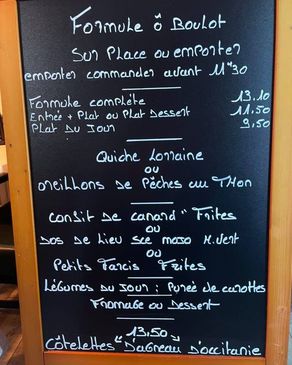 Formule ô Boulot
Sur Place ou emporter
emporter commander avant 11H30
Formule complète 13.10
Entrée + Plat ou Plat Dessert 11.50
Plat Du Jour 9,50
Quiche Lorraine
ou
oreillons De Pêches au Thon
Confit de canard " Frites
ou
Dos De Lieu sce H.Vert
ou
Petits Farcis Frites
Légumes du Jour : Purée de carottes
Fromage ou Dessert
13.50
Côtelettes D'agneau D'occitanie